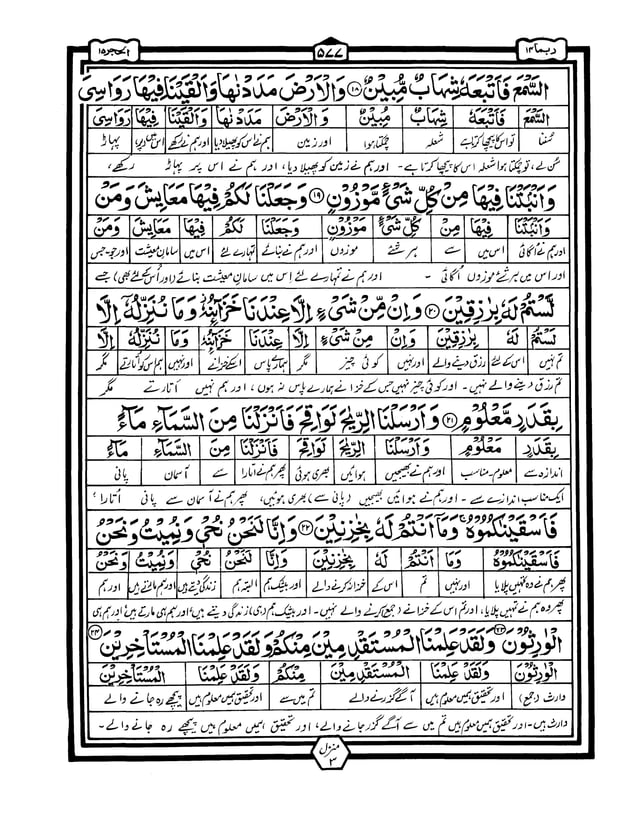 ربما ۱۴
۵۷۷
الحجر ۱۵
السَّمْعَ فَاَتْبَعَهٗ شِهَابٌ مُّبِيْنٌ ۱۸ وَالْاَرْضَ مَدَدْنٰهَا وَاَلْقَيْنَا فِيْهَا رَوَاسِيَ
السَّمْعَ فَاَتْبَعَهٗ شِهَابٌ مُّبِيْنٌ وَالْاَرْضَ مَدَدْنٰهَا وَاَلْقَيْنَا فِيْهَا رَوَاسِيَ
سُننا تو اس کا پیچھا کرتا ہے شعلہ چمکتا ہوا اور زمین ہم نے اس کو پھیلا دیا اور ہم نے رکھے اس میں (پر) پہاڑ
سُن لے، تو چمکتا ہوا شعلہ اس کا پیچھا کرتا ہے۔ اور ہم نے زمین کو پھیلا دیا، اور ہم نے اس پر پہاڑ رکھے،
وَاَنْۢبَتْنَا فِيْهَا مِنْ كُلِّ شَيْءٍ مَّوْزُوْنٍ ۱۹ وَجَعَلْنَا لَكُمْ فِيْهَا مَعَايِشَ وَمَنْ
وَاَنْۢبَتْنَا فِيْهَا مِنْ كُلِّ شَيْءٍ مَّوْزُوْنٍ وَجَعَلْنَا لَكُمْ فِيْهَا مَعَايِشَ وَمَنْ
اور ہم نے اگائی اس میں سے ہر شئے موزوں اور ہم نے بنائے تمہارے لئے اس میں سامانِ معیشت اور جو-جس
اور اس میں ہر شئے موزوں اُگائی۔ اور ہم نے تمہارے لئے اس میں سامانِ معیشت بنائے (اور اُس کے لئے بھی) جسے
لَّسْتُمْ لَهٗ بِرٰزِقِيْنَ ۲۰ وَاِنْ مِّنْ شَيْءٍ اِلَّا عِنْدَنَا خَزَآئِنُهٗ وَمَا نُنَزِّلُهٗٓ اِلَّا
لَّسْتُمْ لَهٗ بِرٰزِقِيْنَ وَاِنْ مِّنْ شَيْءٍ اِلَّا عِنْدَنَا خَزَآئِنُهٗ وَمَا نُنَزِّلُهٗٓ اِلَّا
تم نہیں اس کے لئے رزق دینے والے اور نہیں کوئی چیز مگر ہمارے پاس اسکے خزانے اور نہیں ہم اس کو اتارتے مگر
تم رزق دینے والے نہیں۔ اور کوئی چیز نہیں جس کے خزانے ہمارے پاس نہ ہوں، اور ہم نہیں اُتارتے مگر
بِقَدَرٍ مَّعْلُوْمٍ ۲۱ وَاَرْسَلْنَا الرِّيٰحَ لَوَاقِحَ فَاَنْزَلْنَا مِنَ السَّمَآءِ مَآءً
بِقَدَرٍ مَّعْلُوْمٍ وَاَرْسَلْنَا الرِّيٰحَ لَوَاقِحَ فَاَنْزَلْنَا مِنَ السَّمَآءِ مَآءً
اندازہ سے معلوم۔مناسب اور ہم نے بھیجیں ہوائیں بھری ہوئی پھر ہم نے اُتارا سے آسمان پانی
ایک مناسب اندازے سے۔ اور ہم نے ہوائیں بھیجیں (پانی سے) بھری ہوئیں، پھر ہم نے آسمان سے پانی اُتارا،
فَاَسْقَيْنٰكُمُوْهُ وَمَآ اَنْتُمْ لَهٗ بِخٰزِنِيْنَ ۲۲ وَاِنَّا لَنَحْنُ نُحْيٖ وَنُمِيْتُ وَنَحْنُ
فَاَسْقَيْنٰكُمُوْهُ وَمَآ اَنْتُمْ لَهٗ بِخٰزِنِيْنَ وَاِنَّا لَنَحْنُ نُحْيٖ وَنُمِيْتُ وَنَحْنُ
پھر ہم نے وہ تمہیں پلایا اور نہیں تم اس کے خزانہ کرنے والے اور بیشک ہم البتہ ہم زندگی دیتے ہیں اور ہم مارتے ہیں اور ہم
پھر وہ ہم نے تمہیں پلایا، اور تم اس کے خزانے (جمع) کرنے والے نہیں۔ اور بیشک ہم (ہی) زندگی دیتے ہیں اور ہم ہی مارتے ہیں اور ہم ہی
الْوٰرِثُوْنَ ۲۳ وَلَقَدْ عَلِمْنَا الْمُسْتَقْدِمِيْنَ مِنْكُمْ وَلَقَدْ عَلِمْنَا الْمُسْتَاْخِرِيْنَ ۲۴
الْوٰرِثُوْنَ وَلَقَدْ عَلِمْنَا الْمُسْتَقْدِمِيْنَ مِنْكُمْ وَلَقَدْ عَلِمْنَا الْمُسْتَاْخِرِيْنَ
وارث (جمع) اور تحقیق ہمیں معلوم ہیں آگے گزرنے والے تم میں سے اور تحقیق ہمیں معلوم ہیں پیچھے رہ جانے والے
وارث ہیں۔ اور تحقیق ہمیں معلوم ہیں تم میں سے آگے گزر جانے والے، اور تحقیق ہمیں معلوم ہیں پیچھے رہ جانے والے۔
منزل
۳